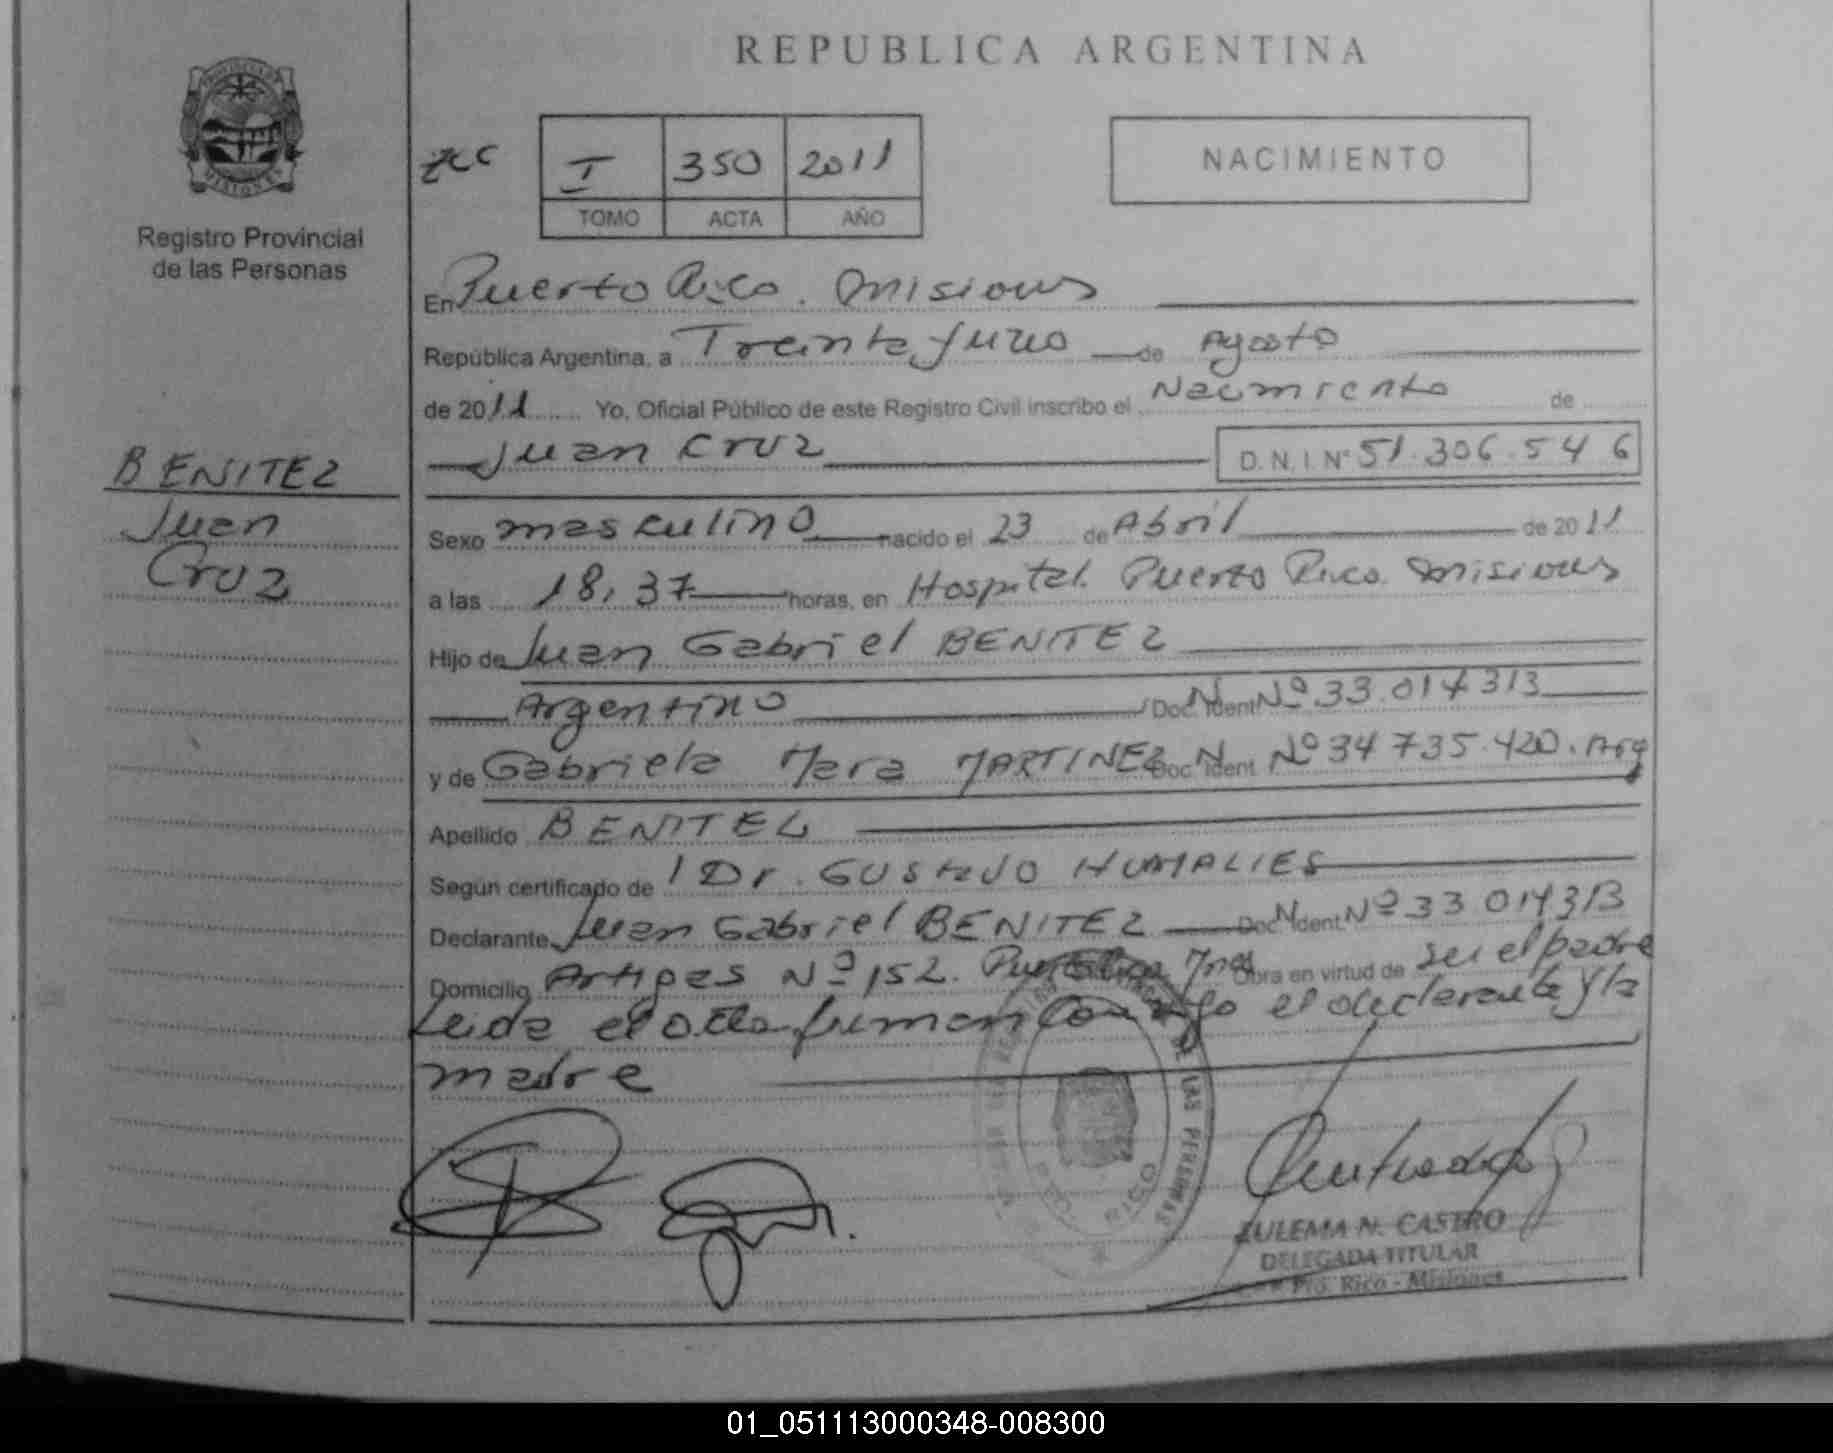 REPUBLICA ARGENTINA
PROVINCIA DE
MISIONES
Registro Provincial
de las Personas
I 350 2011
TOMO ACTA AÑO
NACIMIENTO
En Puerto Rico. Misiones
República Argentina, a Treinta y uno de Agosto
de 2011 Yo, Oficial Público de este Registro Civil inscribo el Nacimiento de
Juan Cruz D.N.I. Nº 51.306.546
BENITEZ
Juan
Cruz
Sexo masculino nacido el 23 de Abril de 2011
a las 18,37 horas, en Hospital. Puerto Rico. Misiones
Hijo de Juan Gabriel BENITEZ
Argentino Doc. Ident Nº 33.014313
y de Gabriela Mara MARTINEZ Doc. Ident Nº 34735.420. Arg
Apellido BENITEZ
Según certificado de Dr. GUSTAVO
Declarante Juan Gabriel BENITEZ Doc. Ident Nº 33 014313
Domicilio Artigas Nº 152. Obra en virtud de ser el padre
Leida el acta firman el declarante y la
madre
DE LAS PERSONAS
RICO
ZULEMA N. CASTRO
DELEGADA TITULAR
Pto. Rico - Misiones
01_051113000348-008300